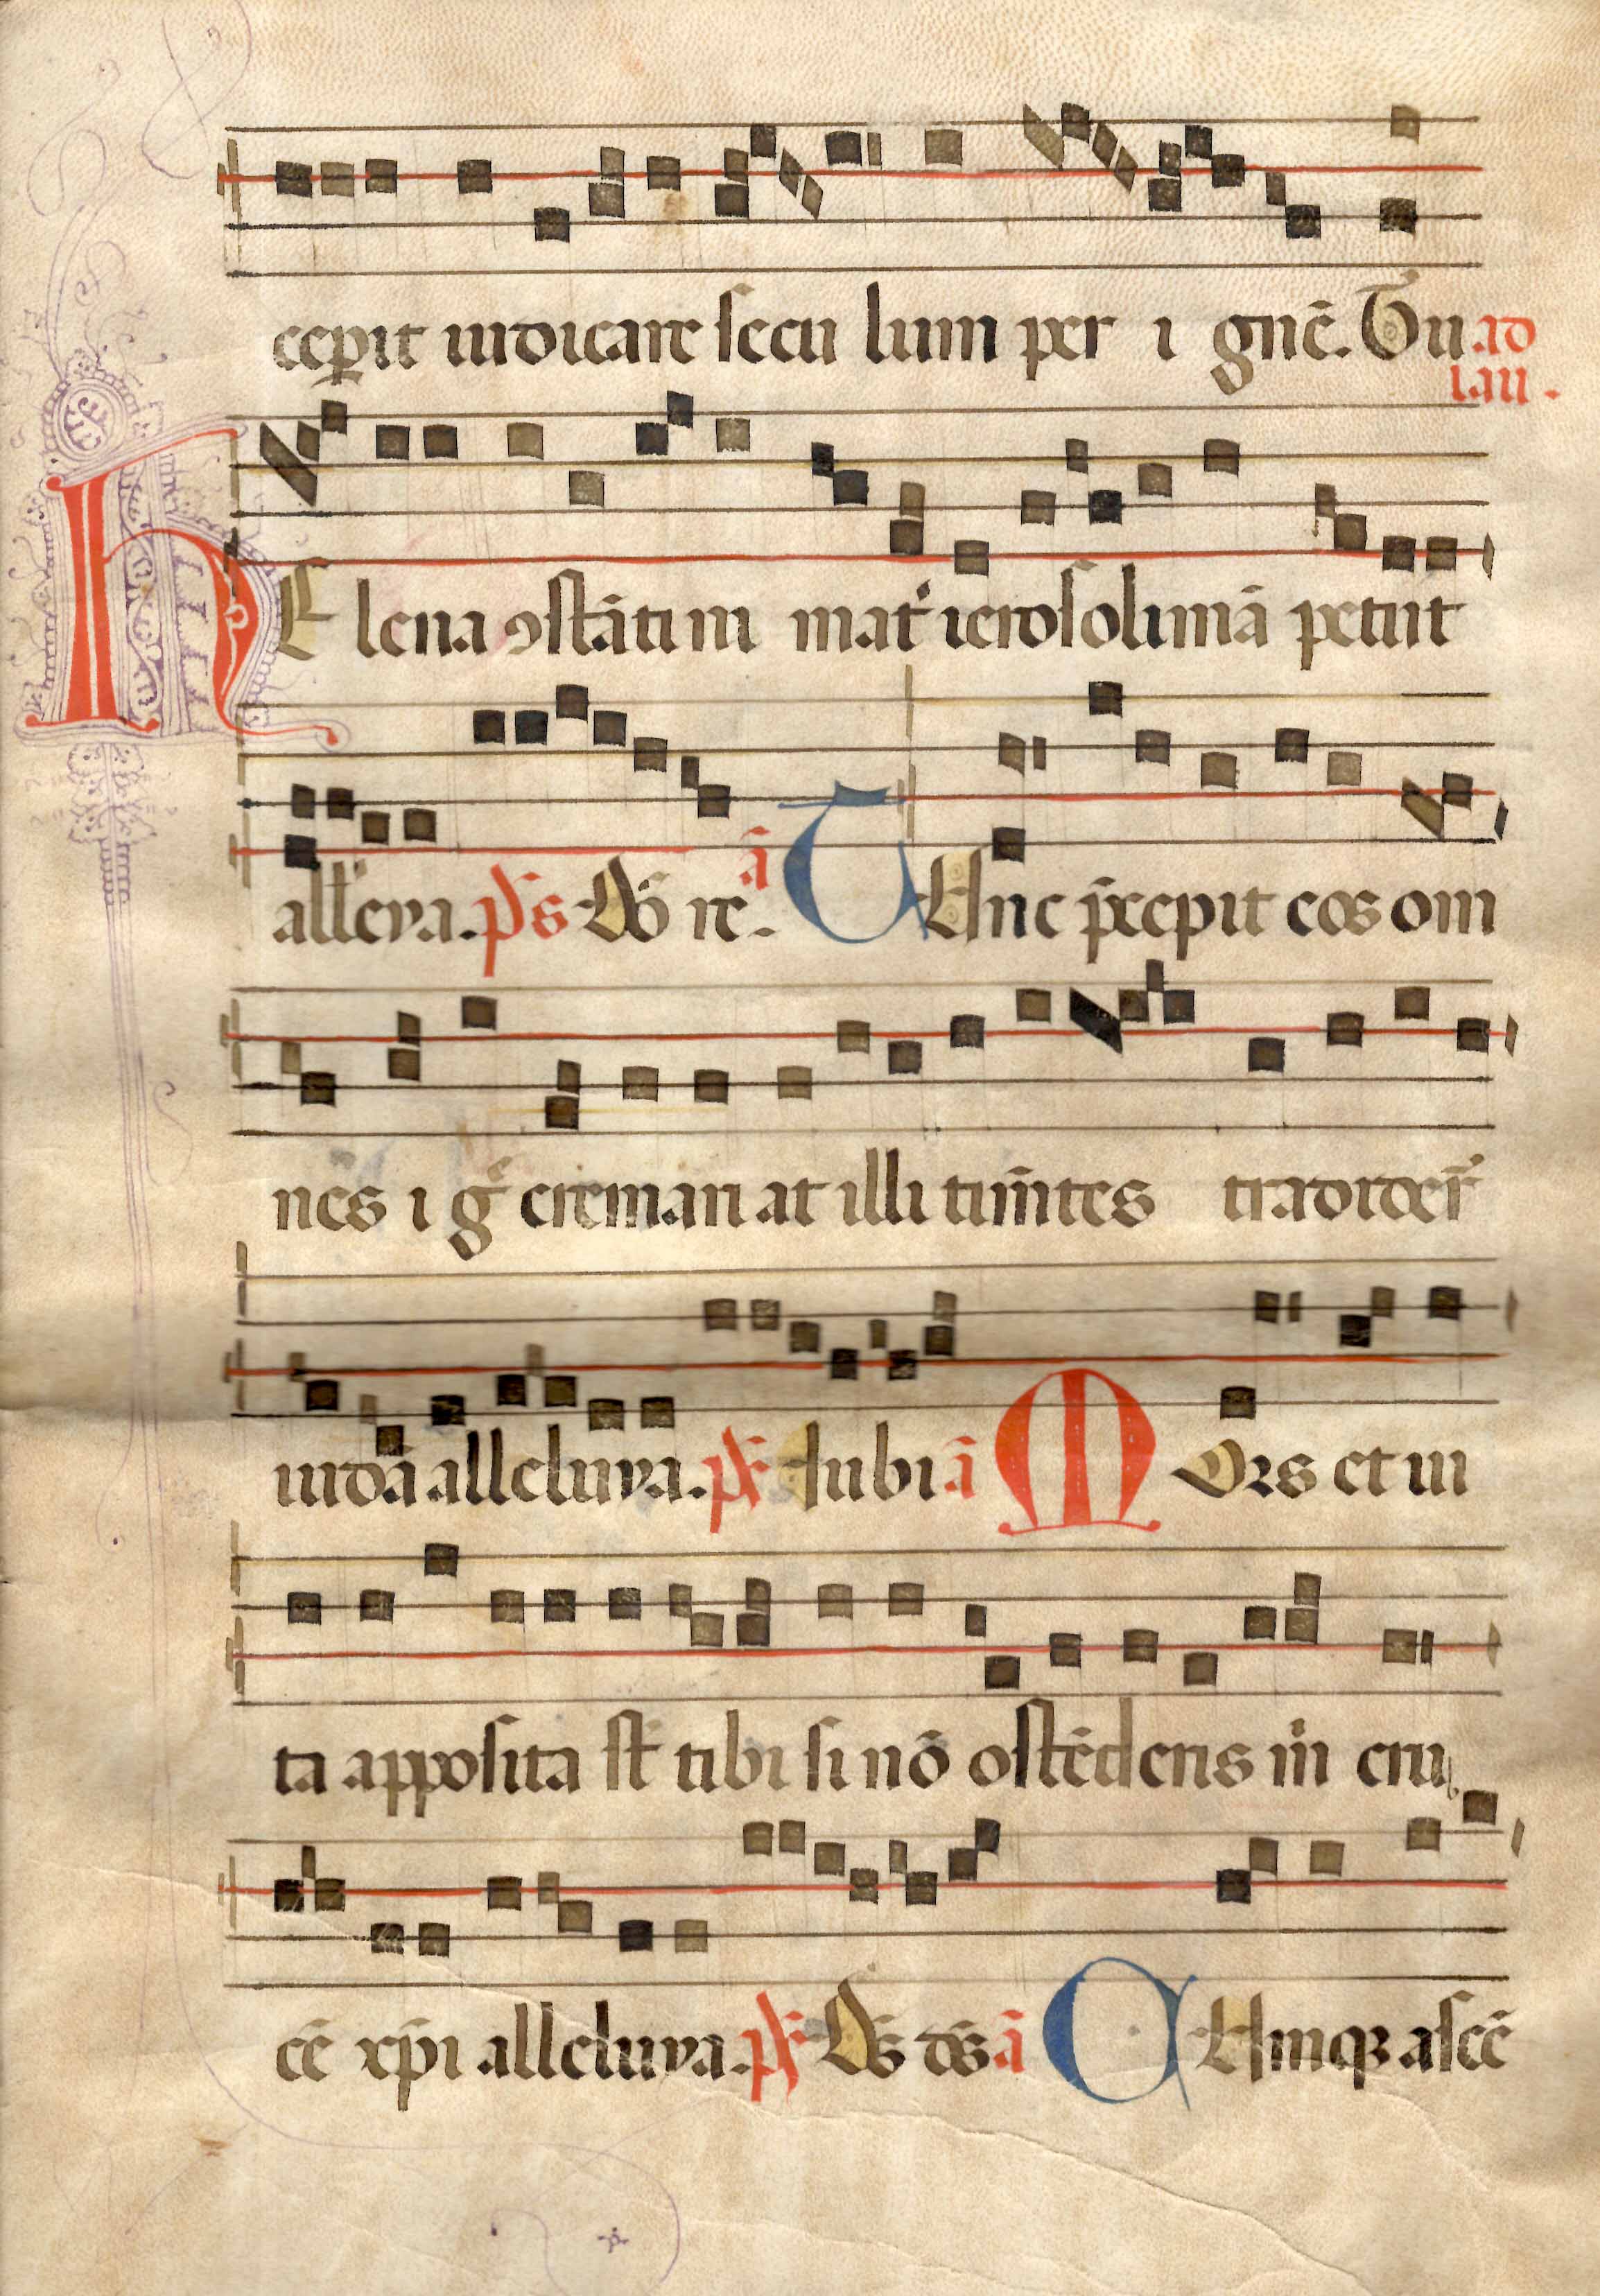 cep̱it iudicare secu lum per i gnē. Tu. ad
lau.
HE lena ꝯstāti ni mat̓ ierosolimā petiit
all̓eya. p̄s Dn̄s re. ā TUnc p̄cepit eos om
nes i g̓ cremari at illi tim̄tes tradider̄
iudā alleluya. ps̄ Iubi ā MOrs et ui
ta apposita st̄ tibi si nō ostēderis m̓ cru
cē xp̄i alleluya. ps̄ Ds̄ ds̄ ā CUmqꝫ ascē